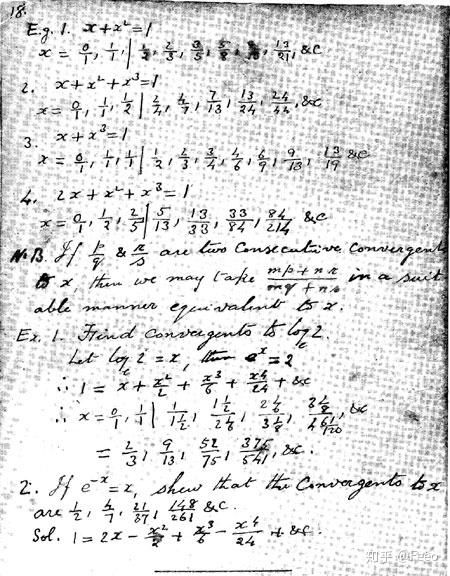 18.
E.g. 1. x + x² = 1
x = 0/1, 1/1, | 1/2, 2/3, 3/5, 5/8, 8/13, 13/21, &c
2. x + x² + x³ = 1
x = 0/1, 1/1, 1/2 | 2/4, 4/7, 7/13, 13/24, 24/44, &c
3. x + x³ = 1
x = 0/1, 1/1, 1/1 | 1/2, 2/3, 3/4, 4/6, 6/9, 9/13, 13/19 &c
4. 2x + x² + x³ = 1
x = 0/1, 1/2, 2/5 | 5/13, 13/33, 33/84, 84/214 &c
N.B. If p/q & r/s are two consecutive convergents
to x, then we may take (mp + nr)/(mq + ns) in a suit
able manner equivalent to x.
Ex. 1. Find convergents to logₑ2.
Let logₑ2 = x, then eˣ = 2
∴ 1 = x + x²/2 + x³/6 + x⁴/24 + &c
∴ x = 0/1, 1/1 | 1/1½, 1½/2⅙, 2⅙/3⅛, 3⅛/4 61/120, &c
= 2/3, 9/13, 52/75, 375/541, &c.
2. If e⁻ˣ = x, shew that the convergents to x
are 1/2, 4/7, 21/37, 148/261 &c.
Sol. 1 = 2x − x²/2 + x³/6 − x⁴/24 + &c.
知乎